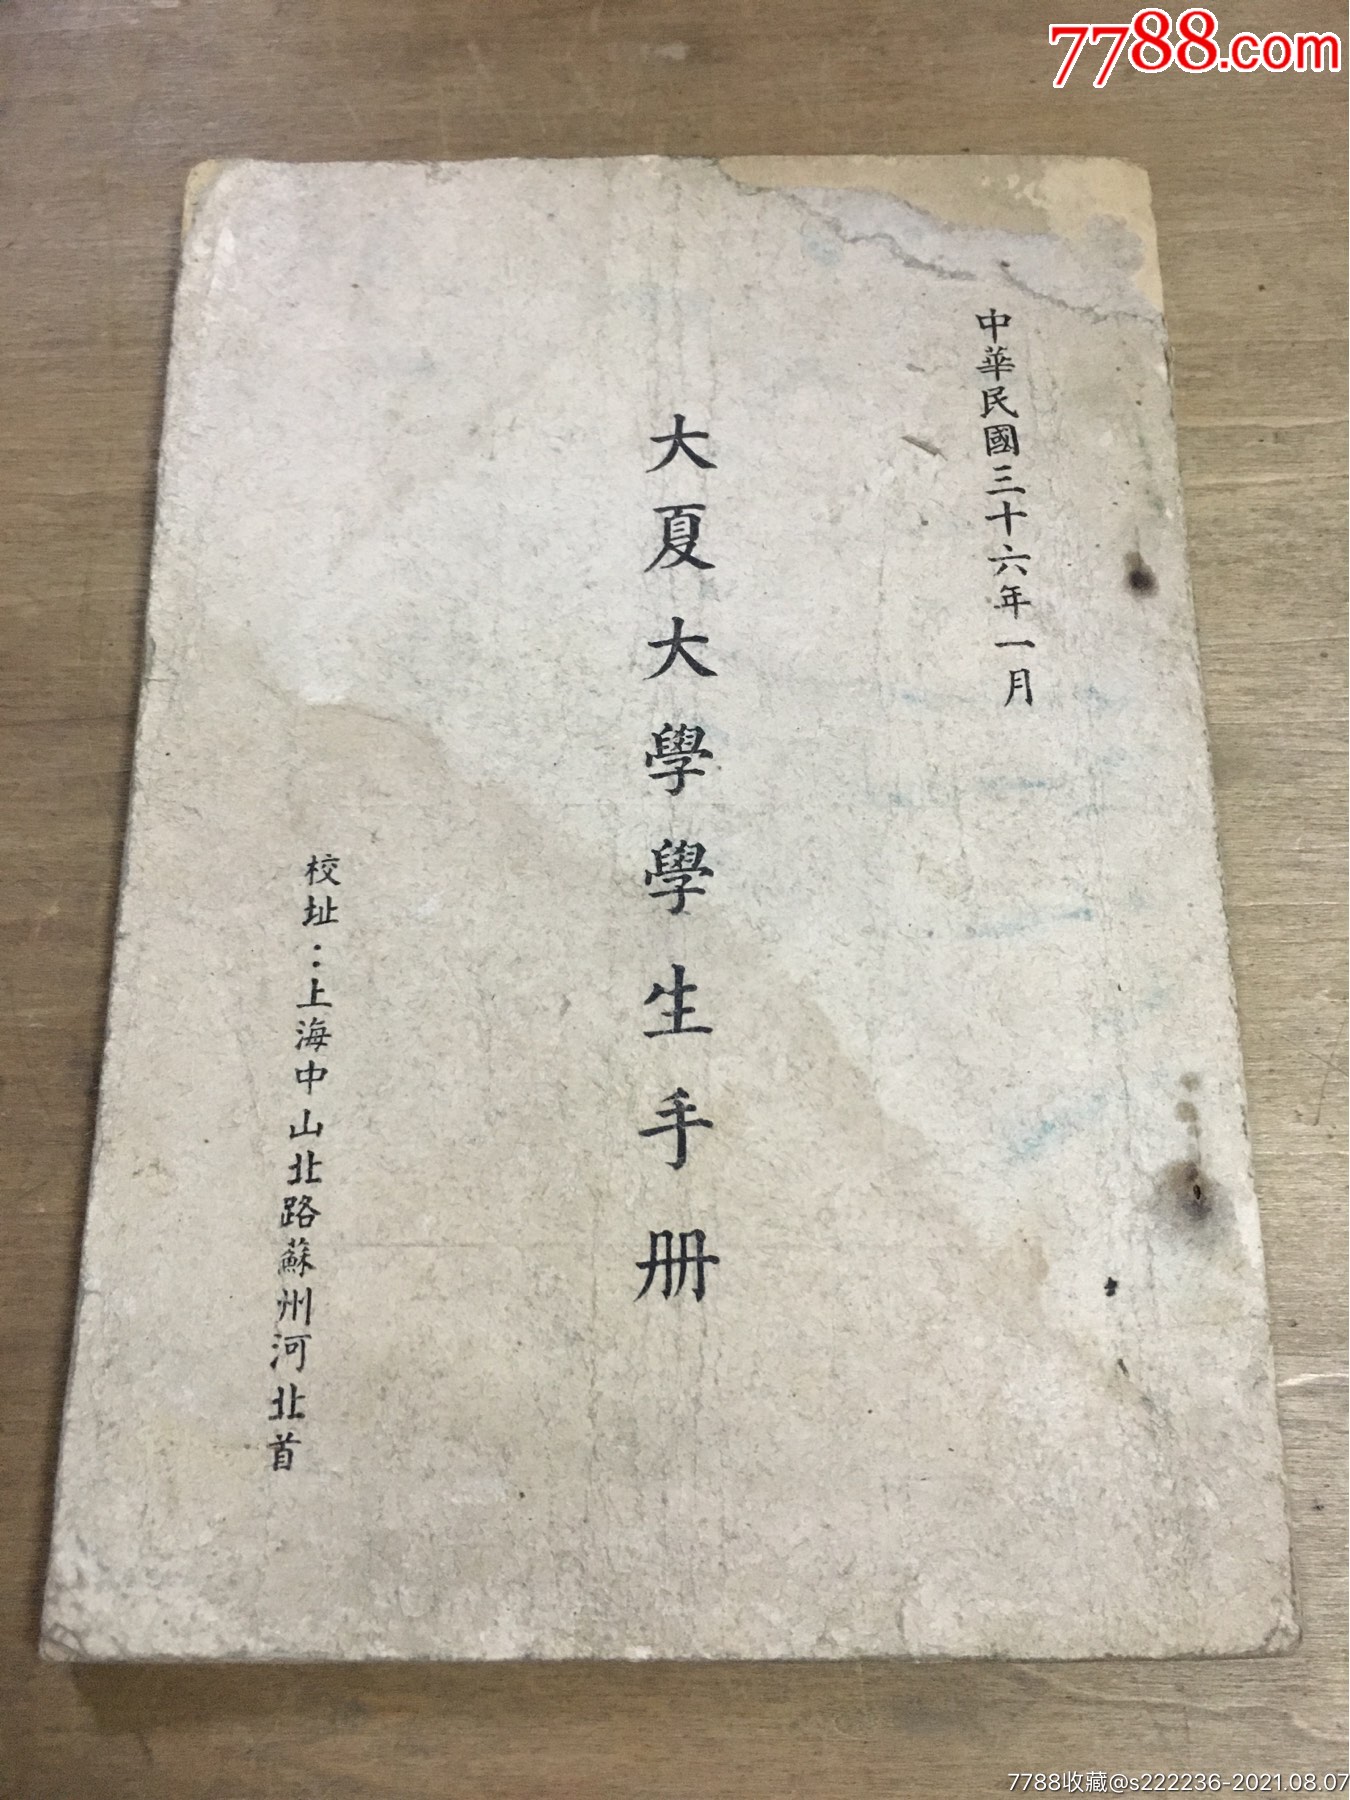 7788.com
中華民國三十六年一月
大夏大學學生手册
校址：上海中山北路蘇州河北首
7788收藏@s222236-2021.08.07